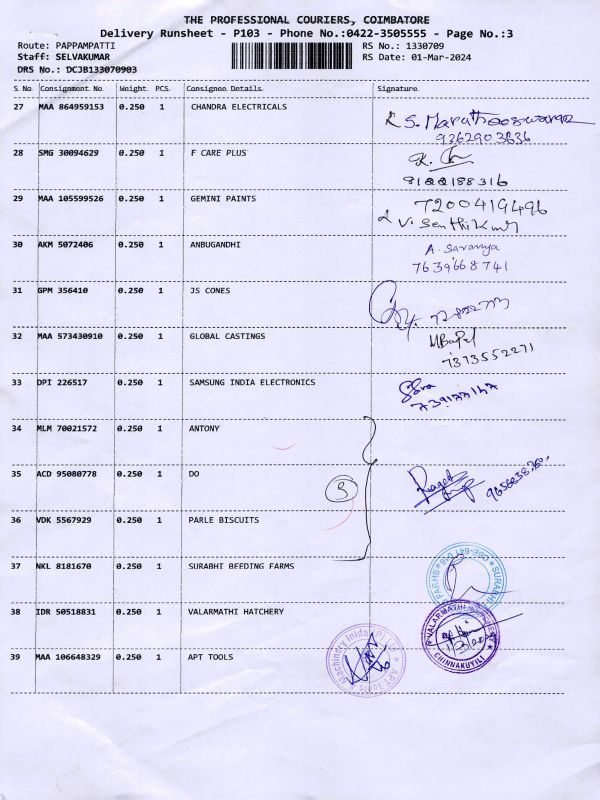 THE PROFESSIONAL COURIERS, COIMBATORE
Delivery Runsheet - P103 - Phone No.:0422-3505555 - Page No.:3
Route: PAPPAMPATTI RS No.: 1330709
Staff: SELVAKUMAR RS Date: 01-Mar-2024
DRS No.: DCJB133070903
S No Consignment No. Weight PCS Consignee Details Signature
27 MAA 864959153 0.250 1 CHANDRA ELECTRICALS
9362903636
28 SMG 30094629 0.250 1 F CARE PLUS
8122188316
29 MAA 105599526 0.250 1 GEMINI PAINTS 7200419496
V. Senthilkumar
30 AKM 5072406 0.250 1 ANBUGANDHI A. Saranya
7639668741
31 GPM 356410 0.250 1 JS CONES
32 MAA 573430910 0.250 1 GLOBAL CASTINGS
7373552271
33 DPI 226517 0.250 1 SAMSUNG INDIA ELECTRONICS
34 MLM 70021572 0.250 1 ANTONY
35 ACD 95080778 0.250 1 DO 3
36 VDK 5567929 0.250 1 PARLE BISCUITS
37 NKL 8181670 0.250 1 SURABHI BEEDING FARMS
38 IDR 50518831 0.250 1 VALARMATHI HATCHERY
VALARMATHI
CHINNAKUYILI
39 MAA 106648329 0.250 1 APT TOOLS